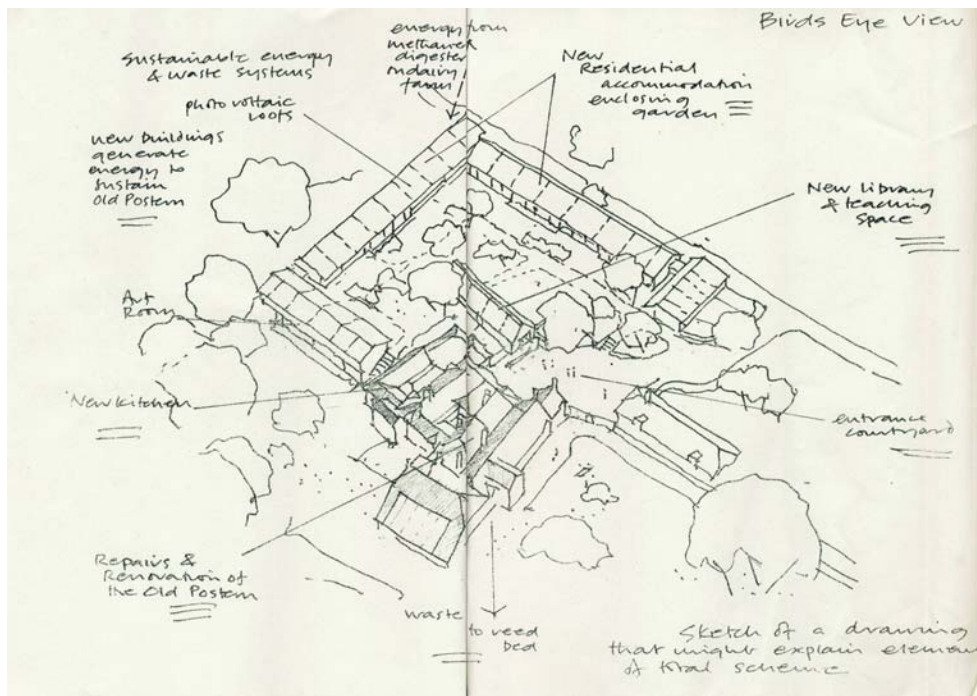 Birds Eye View
Sustainable energy
& waste systems
energy from
methane
digester
on dairy
farm
New
Residential
accommodation
enclosing
garden
photovoltaic
roofs
new buildings
generate
energy to
sustain
Old Postern
New Library
& teaching
space
Art
Room
New Kitchen
entrance
courtyard
Repairs &
Renovation of
the Old Postern
waste
to reed
bed
Sketch of a drawing
that might explain elemen
of total scheme